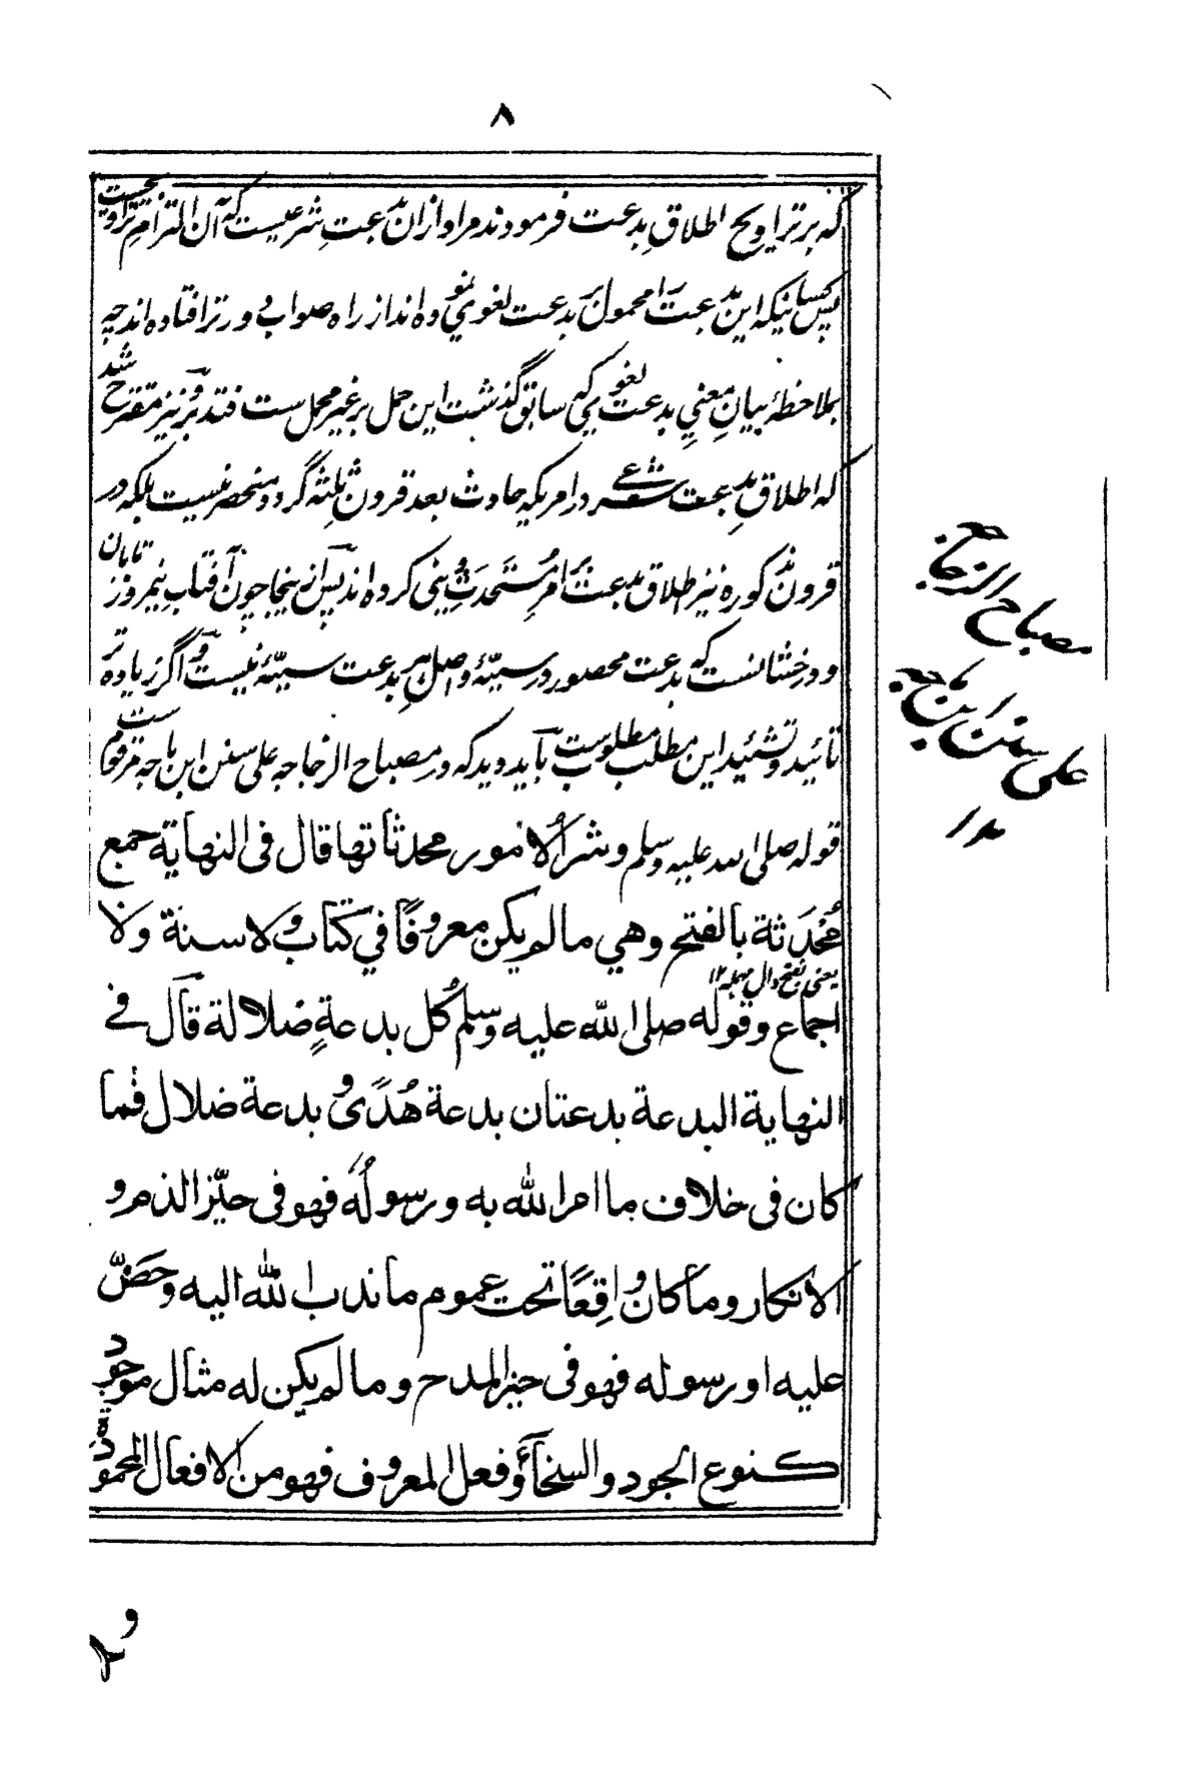 ٨
که بر تراویح اطلاقِ بدعت فرمودند مراد ازان بدعتِ شرعیست که آن التزامِ تراویح
پس کسانیکه این بدعت را محمول بر بدعت لغوی نموده اند از راه صواب دور تر افتاده اند چه
بملاحظهٔ بیانِ معنیِ بدعت لغوی که سابق گذشت این حمل بر غیر محمل ست فتدبر و نیز مقرح شد
که اطلاقِ بدعت در امریکه حادث بعد قرون ثلثه گردد منحصر نیست بلکه در
قرون مذکوره نیز اطلاق بدعت بر امرِ مستحدثِ دینی کرده اند پس ازینجا چون آفتابِ نیمروز تابان
و درخشانست که بدعت محصور در سیئه و اصل هر بدعت سیئه نیست و اگر زیاده تر
تائید و تشئید این مطلب مطلوبست باید دید که در مصباح الزجاجه علی سنن ابن ماجه مرقوم ست
قوله صلی الله علیه وسلم وشر الامور محدثاتها قال فی النهایة جمع
مُحْدَثة بالفتح وهي مالم یکن معروفًا في کتاب ولا سنة ولا
یعنی بفتح دال مهمله ١٢
اجماع وقوله صلی الله علیه وسلم کُل بدعةٍ ضلالة قال فے
النهایة البدعة بدعتان بدعة هُدًی و بدعة ضلال فما
کان فی خلاف ما امر الله به ورسولُه فهو فی حیّز الذم و
الانکار وما کان واقِعًا تحت عموم ما ندب الله الیه وحضّ
علیه او رسوله فهو فی حیز المدح وما لم یکن له مثال موجود
کنوع الجود والسخآء وفعل المعروف فهو من الافعال المحمودة
مصباح الزجاجه
علی سنن ابن ماجه
و